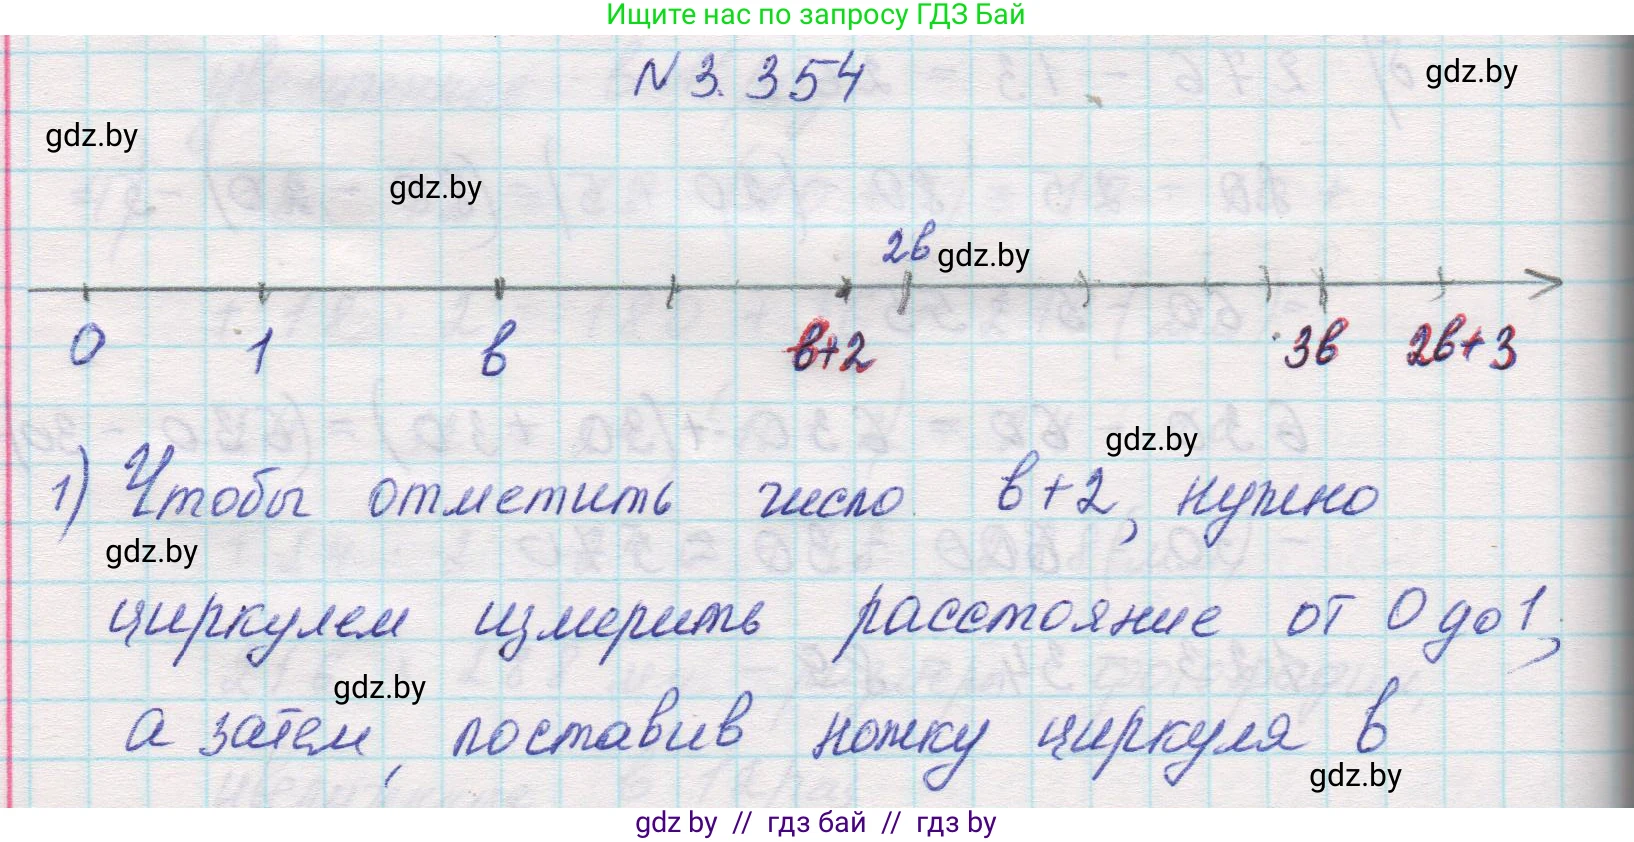 Ищите нас по запросу ГДЗ Бай
N 3.354
gdz.by
gdz.by
gdz.by
2b gdz.by
0 1 b b+2 3b 2b+3
gdz.by
1) Чтобы отметить число b+2, нужно
gdz.by
циркулем измерить расстояние от 0 до 1,
gdz.by
а затем, поставив ножку циркуля в
gdz.by
gdz by // гдз бай // гдз by